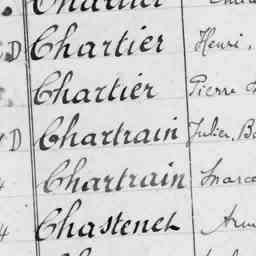 Chartier
D Chartier Henri,
Chartier Pierre
D Chartrain Julien, Ba
4 Chartrain Marce
4 Chastenet Arm